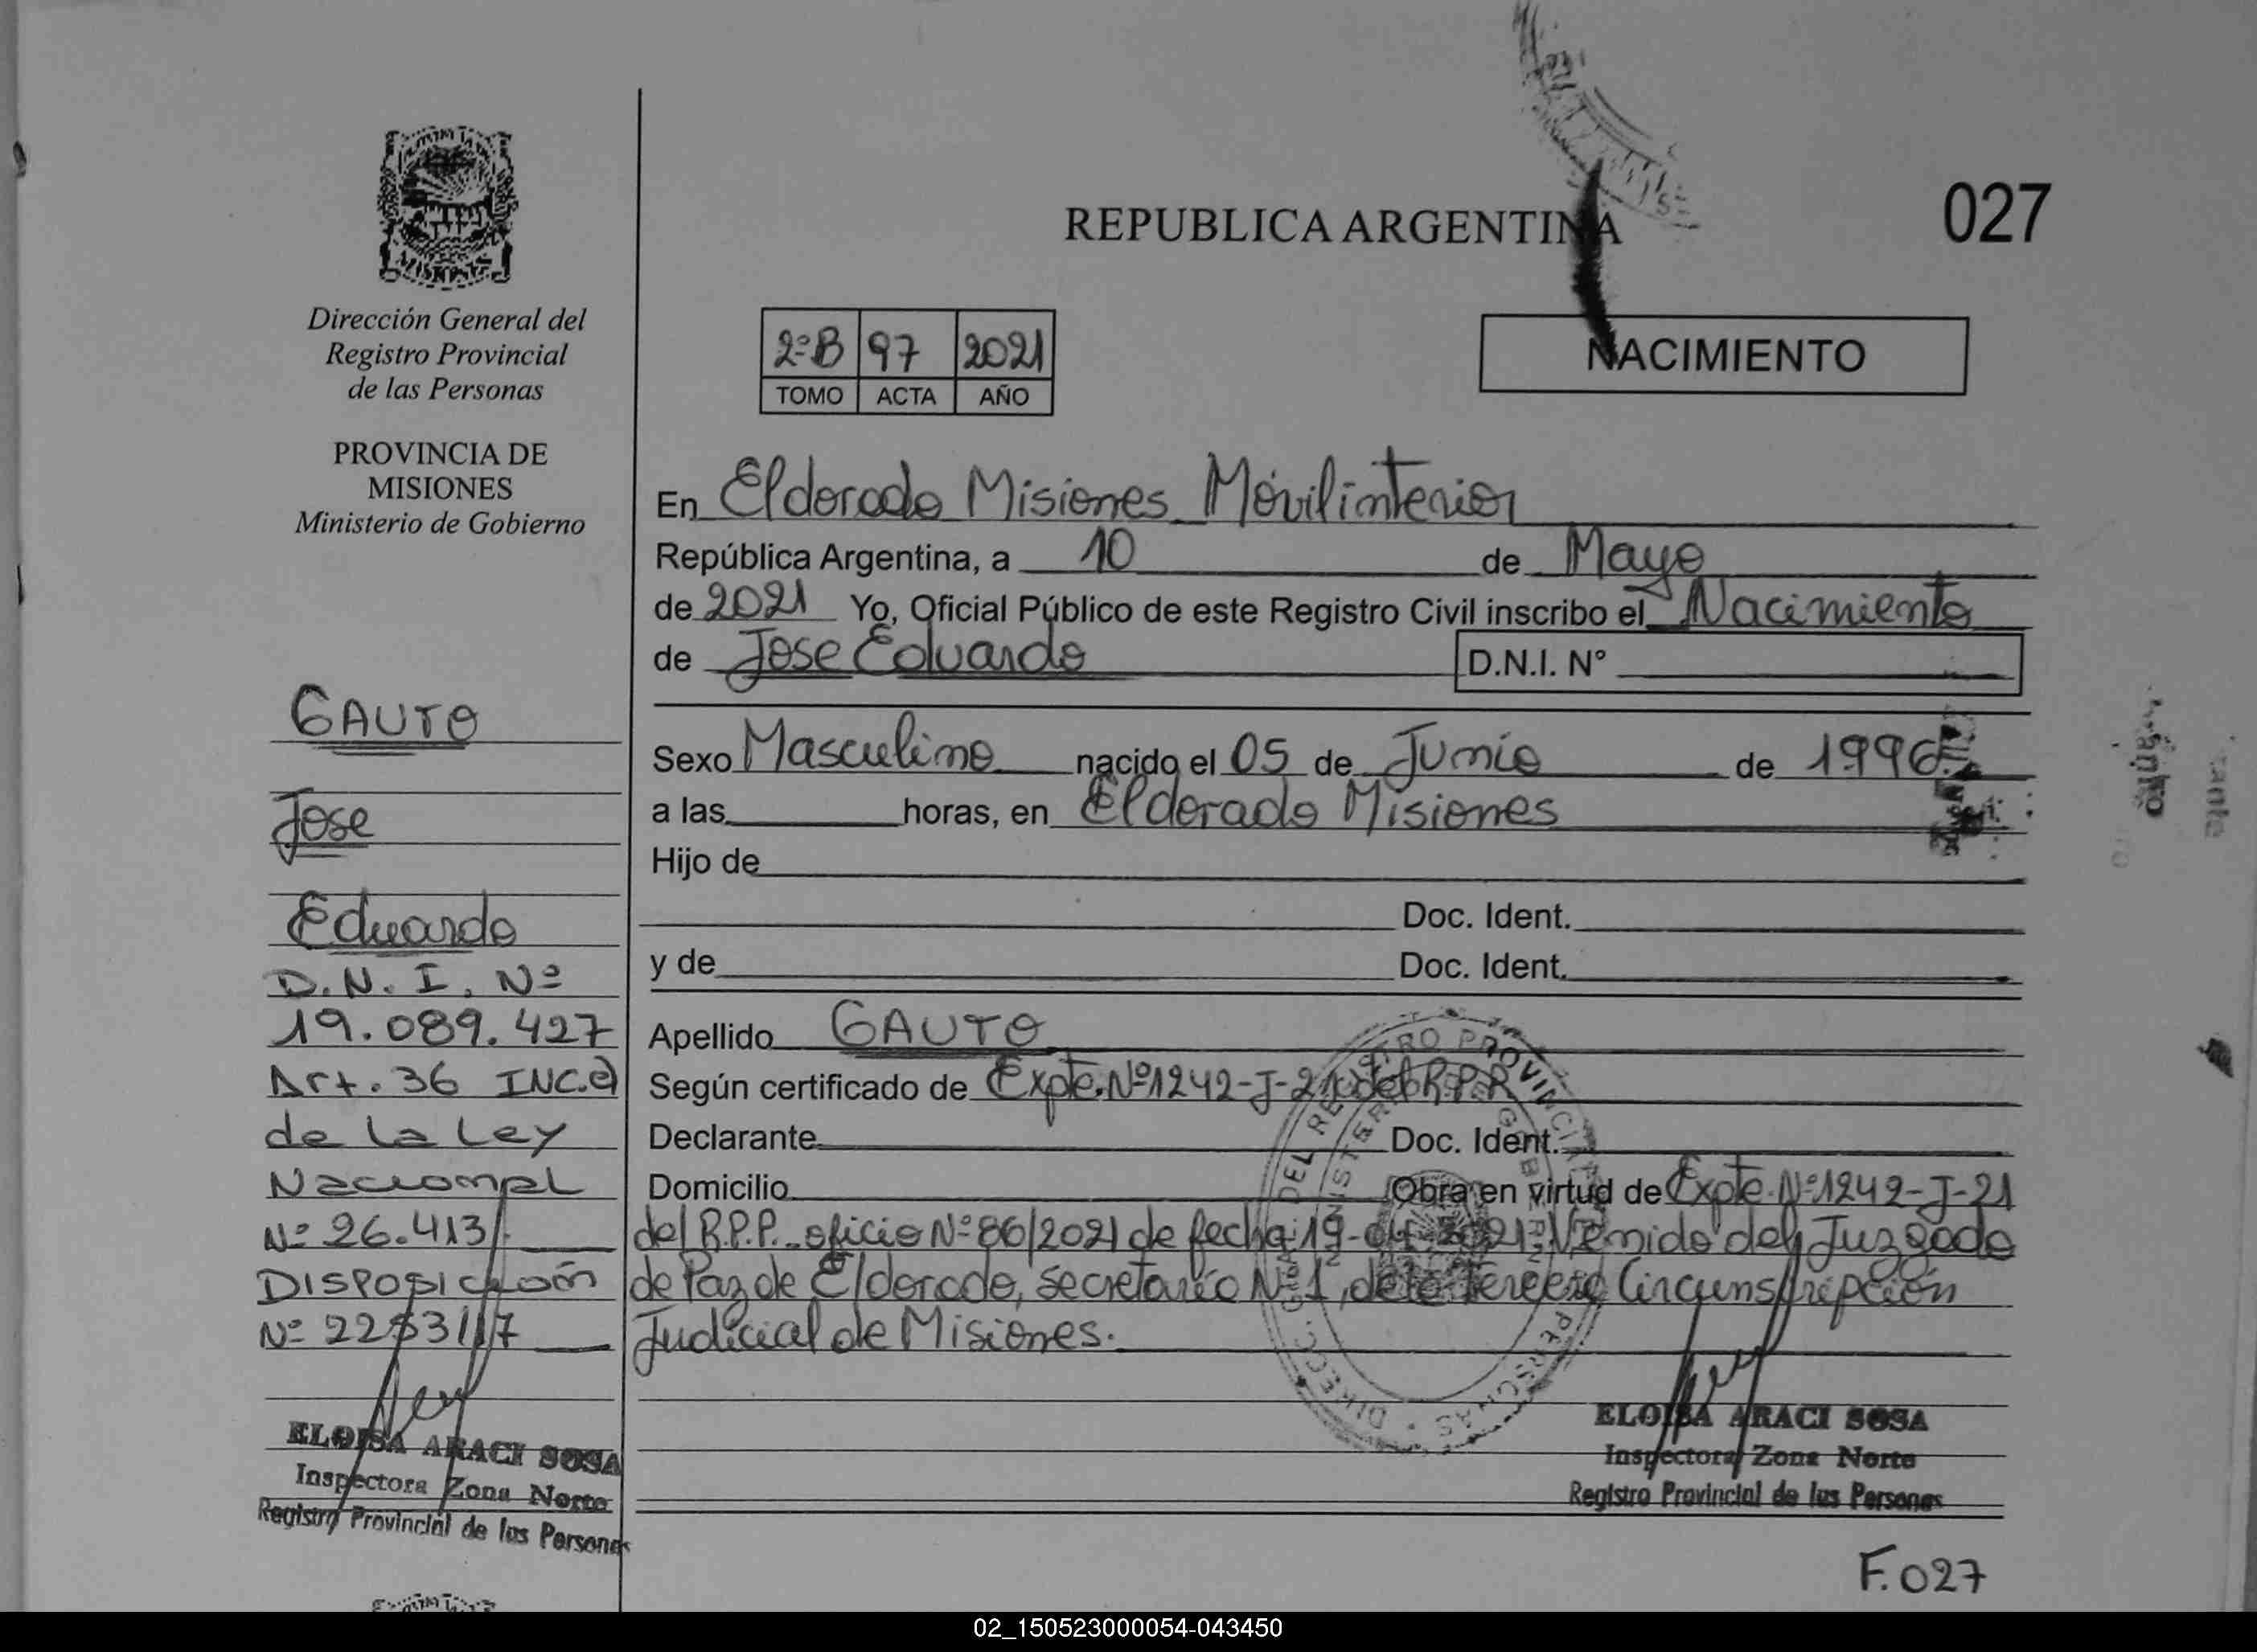 REPUBLICA ARGENTINA
027
Dirección General del
Registro Provincial
de las Personas
PROVINCIA DE
MISIONES
Ministerio de Gobierno
2ºB 97 2021
TOMO ACTA AÑO
NACIMIENTO
En Eldorado Misiones Móvil interior
República Argentina, a 10 de Mayo
de 2021 Yo, Oficial Público de este Registro Civil inscribo el Nacimiento
de Jose Eduardo D.N.I. N°
Sexo Masculino nacido el 05 de Junio de 1996
a las horas, en Eldorado Misiones
Hijo de
Doc. Ident.
y de Doc. Ident.
Apellido GAUTO
Según certificado de Expte. Nº1242-J-21 del R.P.P.
Declarante Doc. Ident.
Domicilio Obra en virtud de Expte. Nº1242-J-21
del R.P.P. oficio Nº 86/2021 de fecha 19- 2021 Venido del Juzgado
de Paz de Eldorado, secretaría Nº 1, de la Tercera Circunscripción
Judicial de Misiones.
GAUTO
Jose
Eduardo
D.N.I. Nº
19.089.427
Art. 36 INC.
de la Ley
Nacional
Nº 26.413
DISPOSICIÓN
Nº 2253/17
ELOISA ARACI SOSA
Inspectora Zona Norte
Registro Provincial de las Personas
ELOISA ARACI SOSA
Inspectora Zona Norte
Registro Provincial de las Personas
F.027
02_150523000054-043450